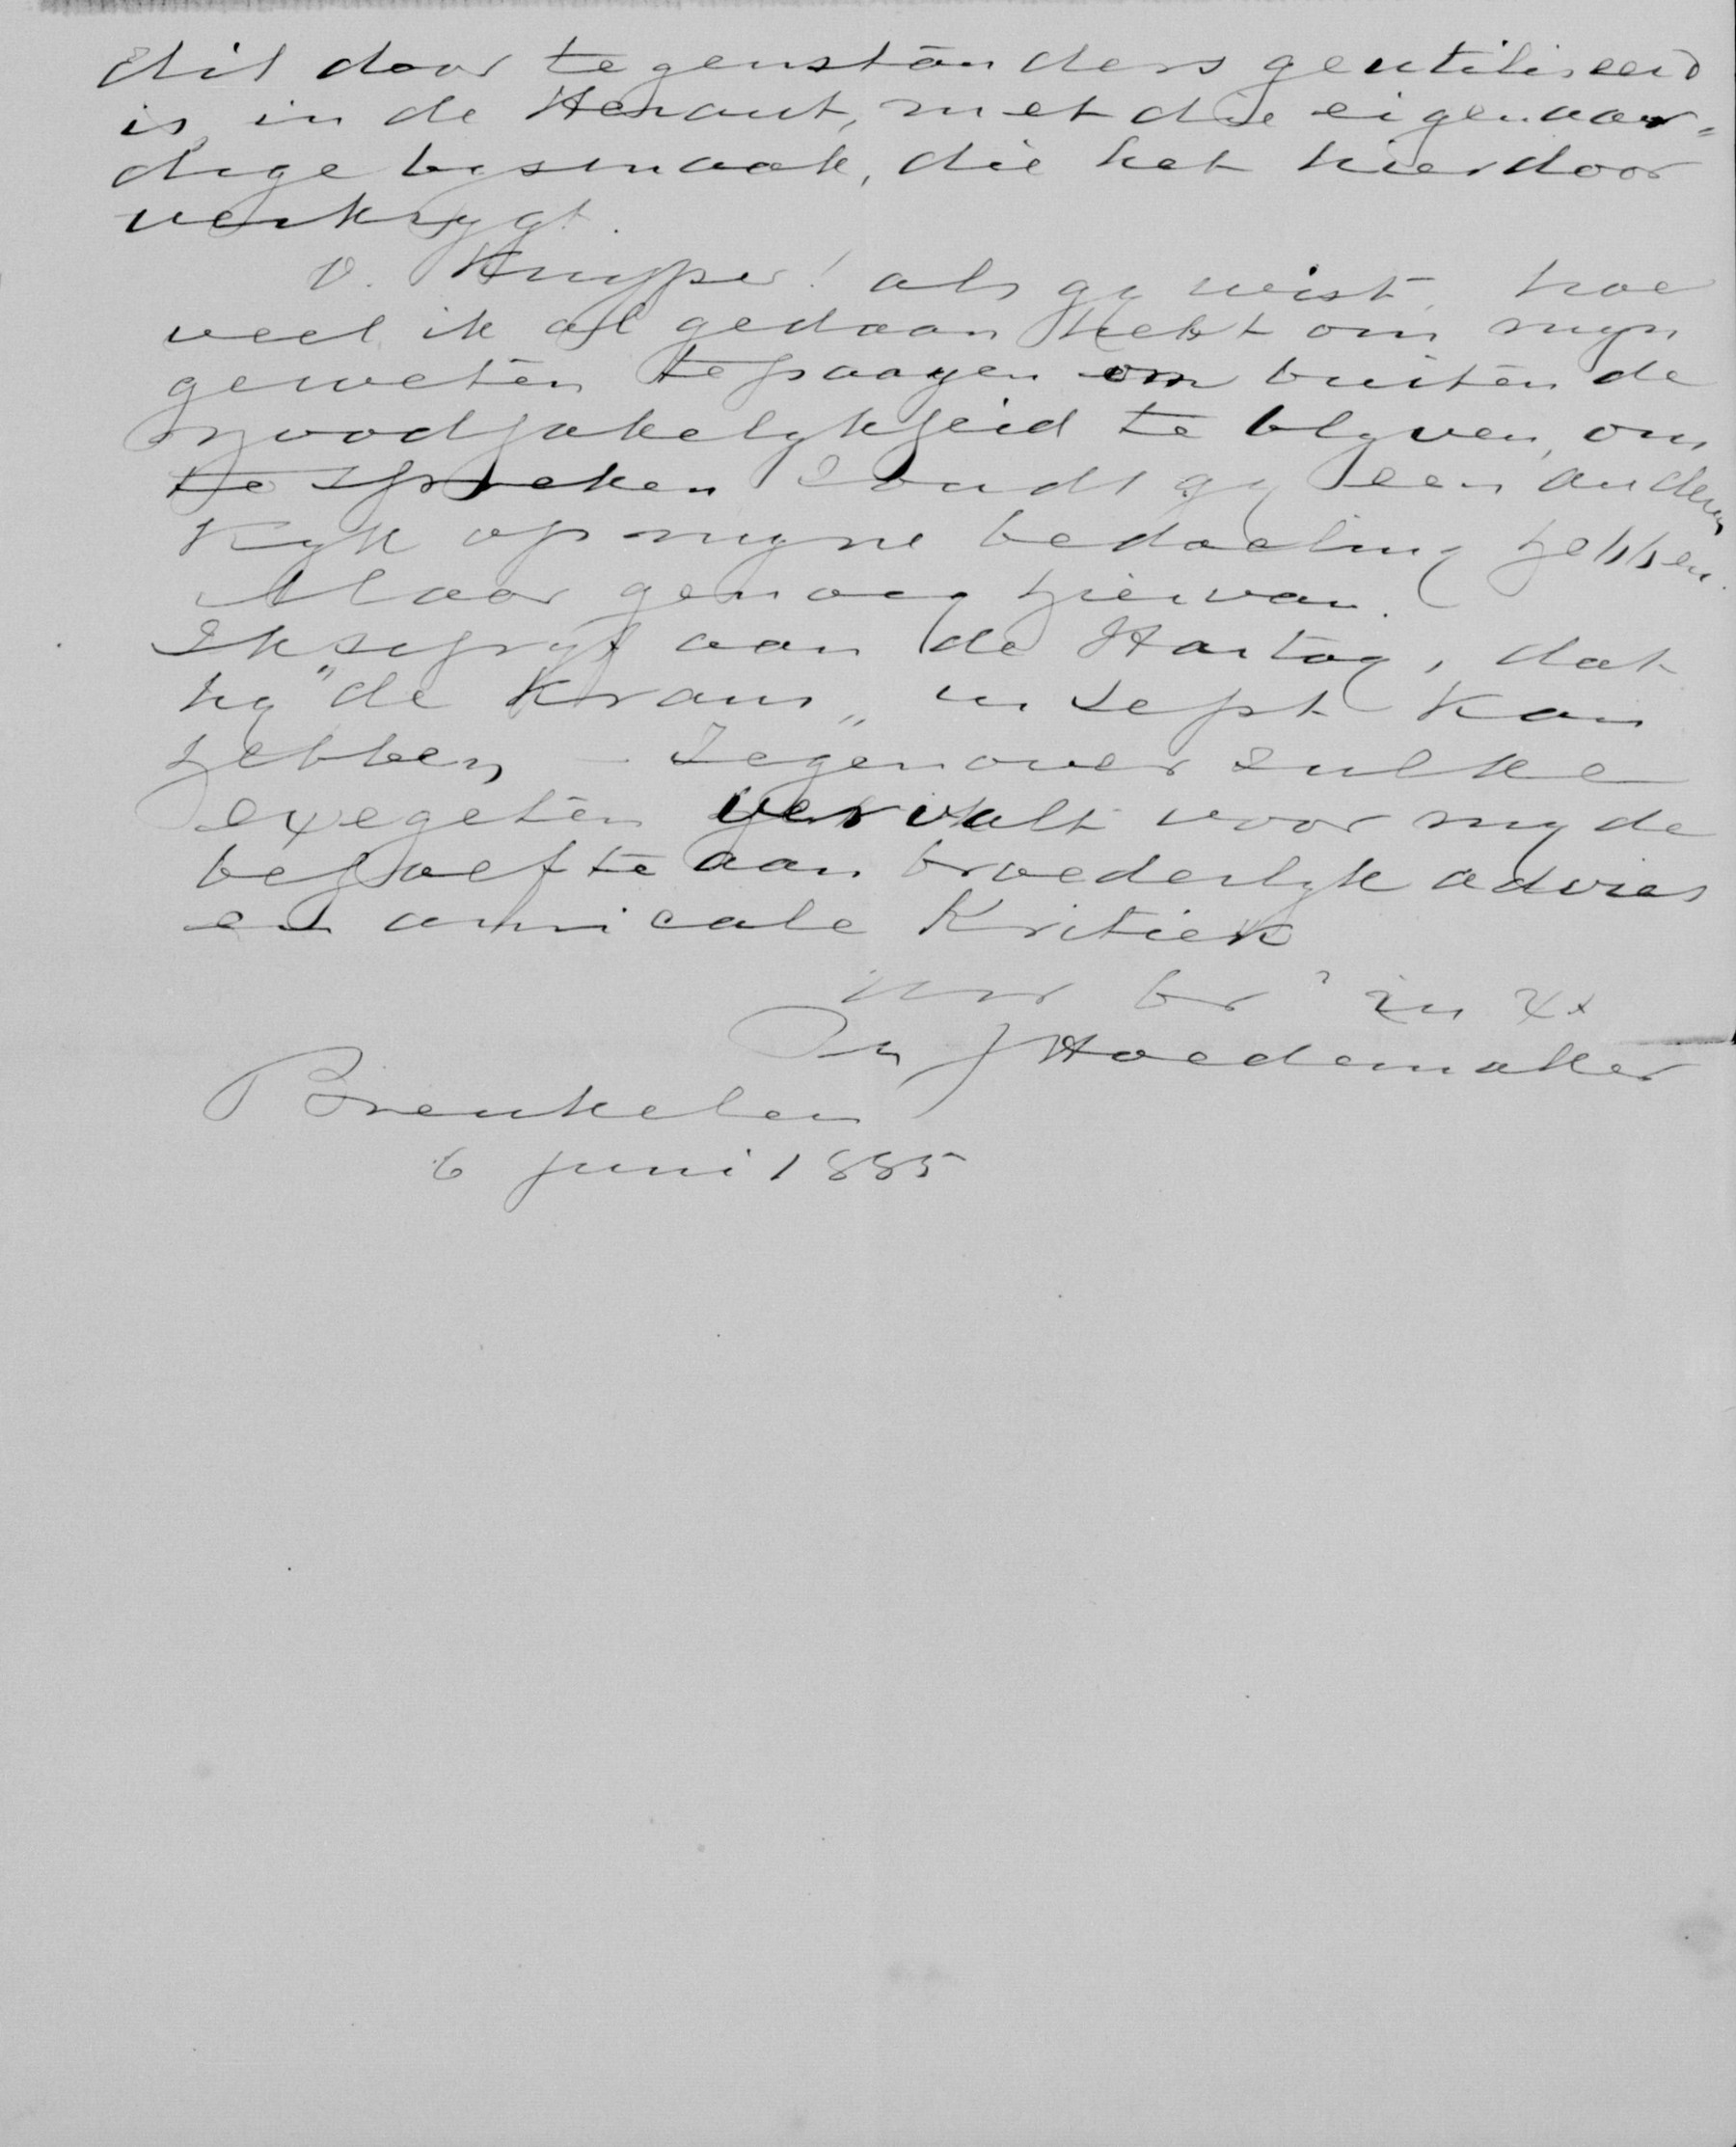 dit door tegenstanders geutiliseerd
is in de Heraut, met die eigenaar=
dige bysmaak, die het hierdoor
verkrygt.
O. Kuyper! als gy wist, hoe
veel ik al gedaan hebt om myn
geweten te paayen om buiten de
noodzakelykheid te blyven, om
te spreken zoudt gy een anderen
Kyk op myne bedoeling hebben.
Maar genoeg hiervan.
Ik schryf aan de Hartog, dat
hy "de Kraus„ in Sept Kan
hebben – Tegenover zulke
exegeten vervalt voor my de
behoefte aan broederlyk advies
en amicale Kritiek
Uw br in X
Ph J Hoedemaker
Breukelen
6 juni 1885